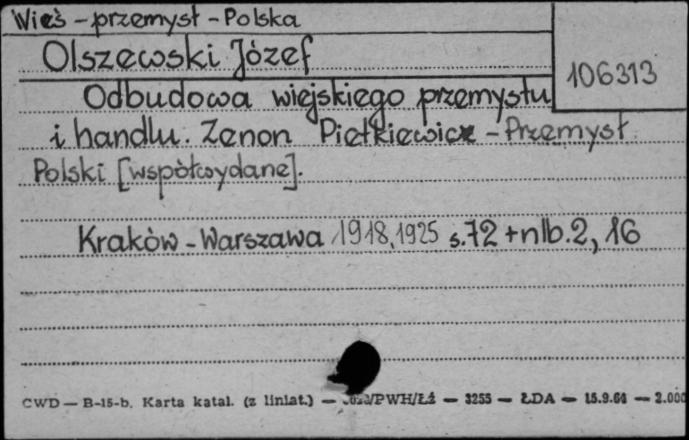 Wieś - przemysł - Polska
Olszewski Józef
106313
Odbudowa wiejskiego przemysłu
i handlu. Zenon Pietkiewicz - Przemysł
Polski [współwydane].
Kraków - Warszawa 1918, 1925 s. 72 + nlb. 2, 16
CWD — B-15-b. Karta katal. (z liniat.) — /PWH/Łź — 3255 — ŁDA — 15.9.64 — 2.000